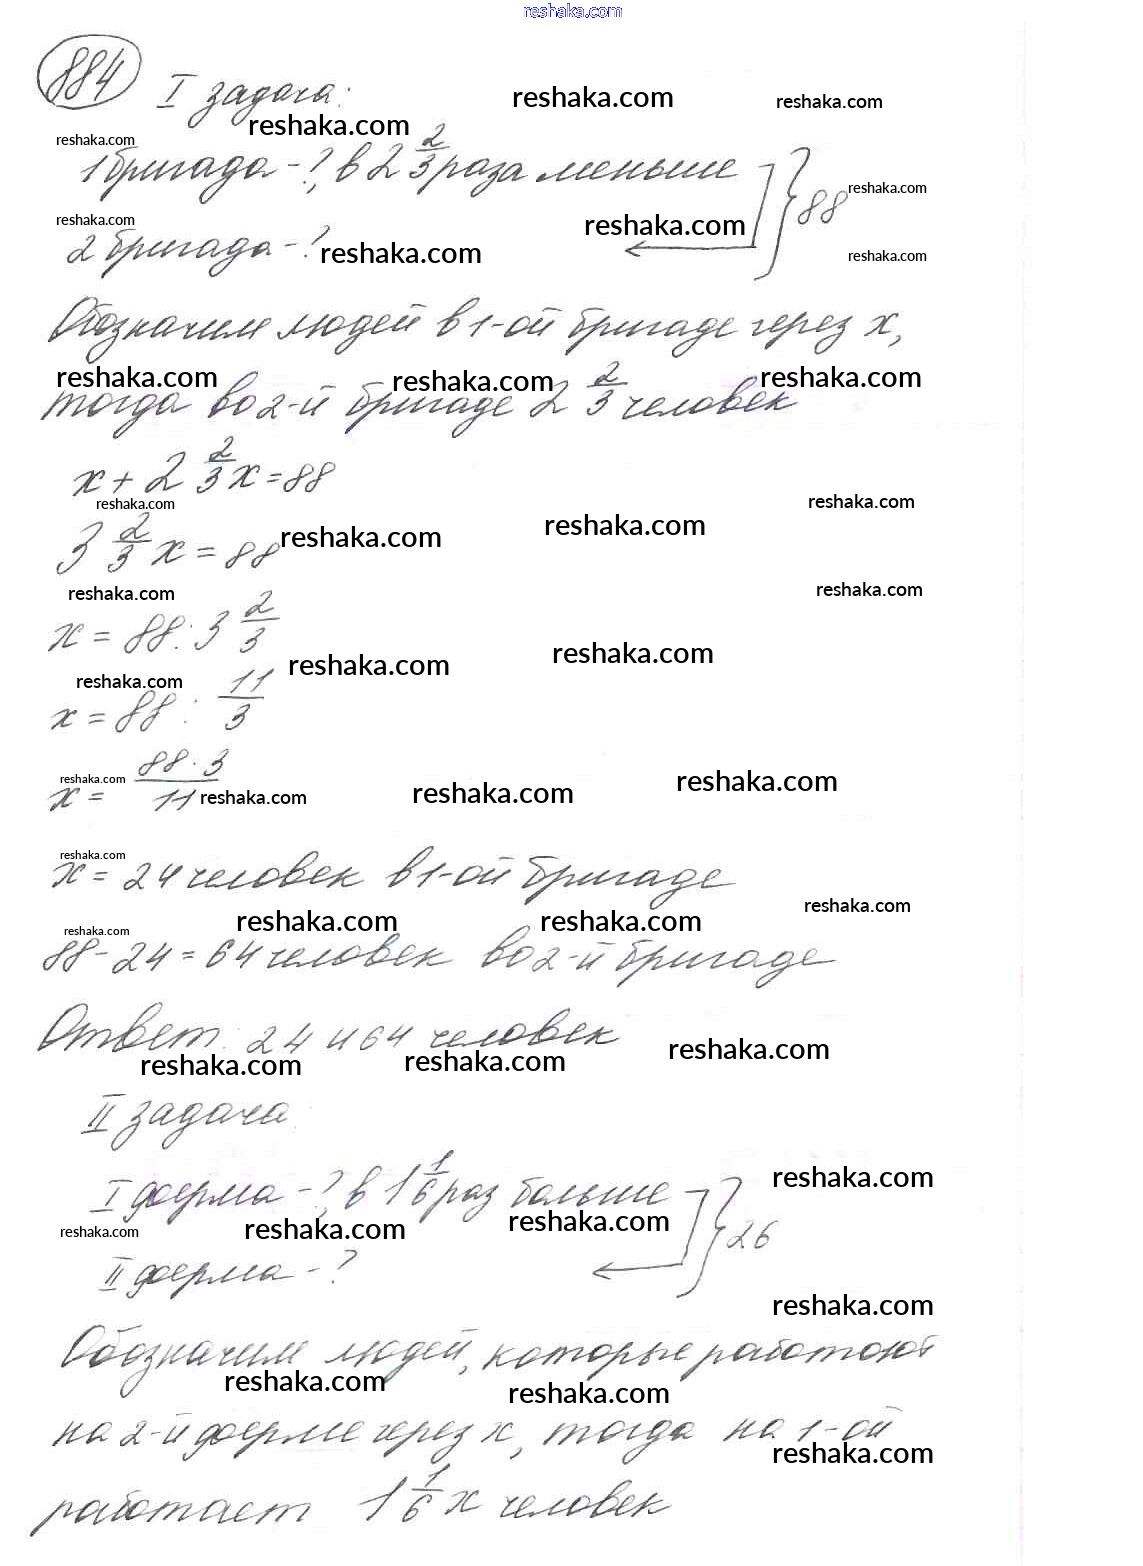 reshaka.com
884 I задача: reshaka.com reshaka.com
reshaka.com
reshaka.com
1 бригада - ?, в 2 2/3 раза меньше
reshaka.com
88
reshaka.com reshaka.com
2 бригада - ? reshaka.com reshaka.com
Обозначим людей в 1-ой бригаде через x,
reshaka.com reshaka.com reshaka.com
тогда во 2-й бригаде 2 2/3 человек
x + 2 2/3 x = 88
reshaka.com reshaka.com
3 2/3 x = 88 reshaka.com reshaka.com
reshaka.com reshaka.com
x = 88 : 3 2/3
reshaka.com reshaka.com
reshaka.com
x = 88 : 11/3
reshaka.com reshaka.com reshaka.com reshaka.com
x = 88 · 3 / 11
reshaka.com
x = 24 человек в 1-ой бригаде
reshaka.com reshaka.com reshaka.com
reshaka.com
88 - 24 = 64 человек во 2-й бригаде
Ответ: 24 и 64 человек
reshaka.com reshaka.com reshaka.com
II задача:
I ферма - ?, в 1 1/6 раз больше
reshaka.com
26
reshaka.com reshaka.com reshaka.com
II ферма - ?
reshaka.com
Обозначим людей, которые работают
reshaka.com reshaka.com
на 2-й ферме через x, тогда на 1-ой
reshaka.com
работает 1 1/6 x человек